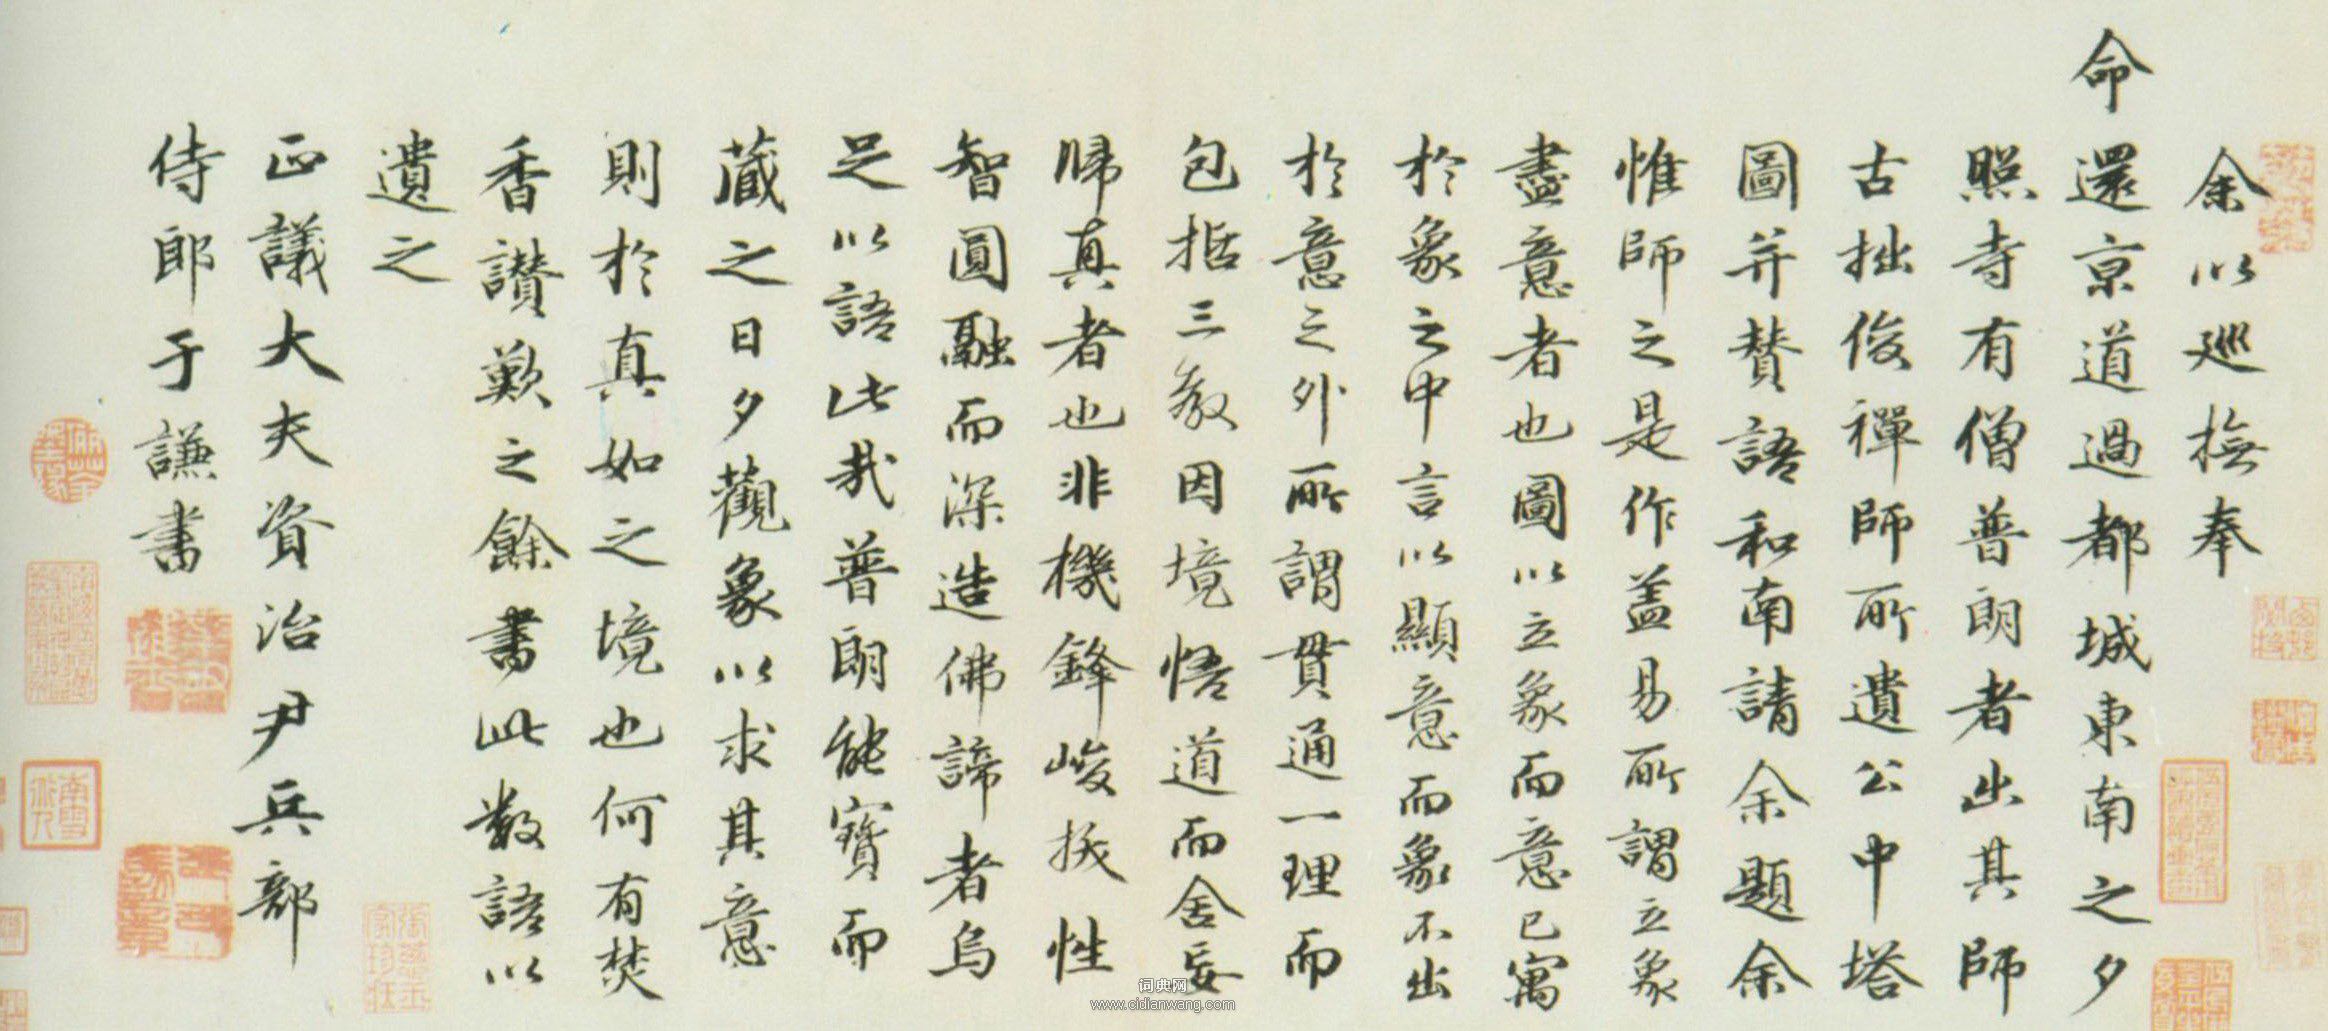 余以巡撫奉
命還京道過都城東南之夕
照寺有僧普朗者出其師
古拙俊禪師所遺公中塔
圖并贊語和南請余題余
惟師之是作盖易所謂立象
盡意者也圖以立象而意已寓
於象之中言以顯意而象不出
於意之外所謂貫通一理而
包括三教因境悟道而舍妄
歸真者也非機鋒峻拔性
智圓融而深造佛諦者烏
足以語此哉普朗能寶而
藏之日夕觀象以求其意
則於真如之境也何有焚
香讃歎之餘書此数語以
遺之
正議大夫資治尹兵部
侍郎于謙書
南雪
词典网
www.cidianwang.com